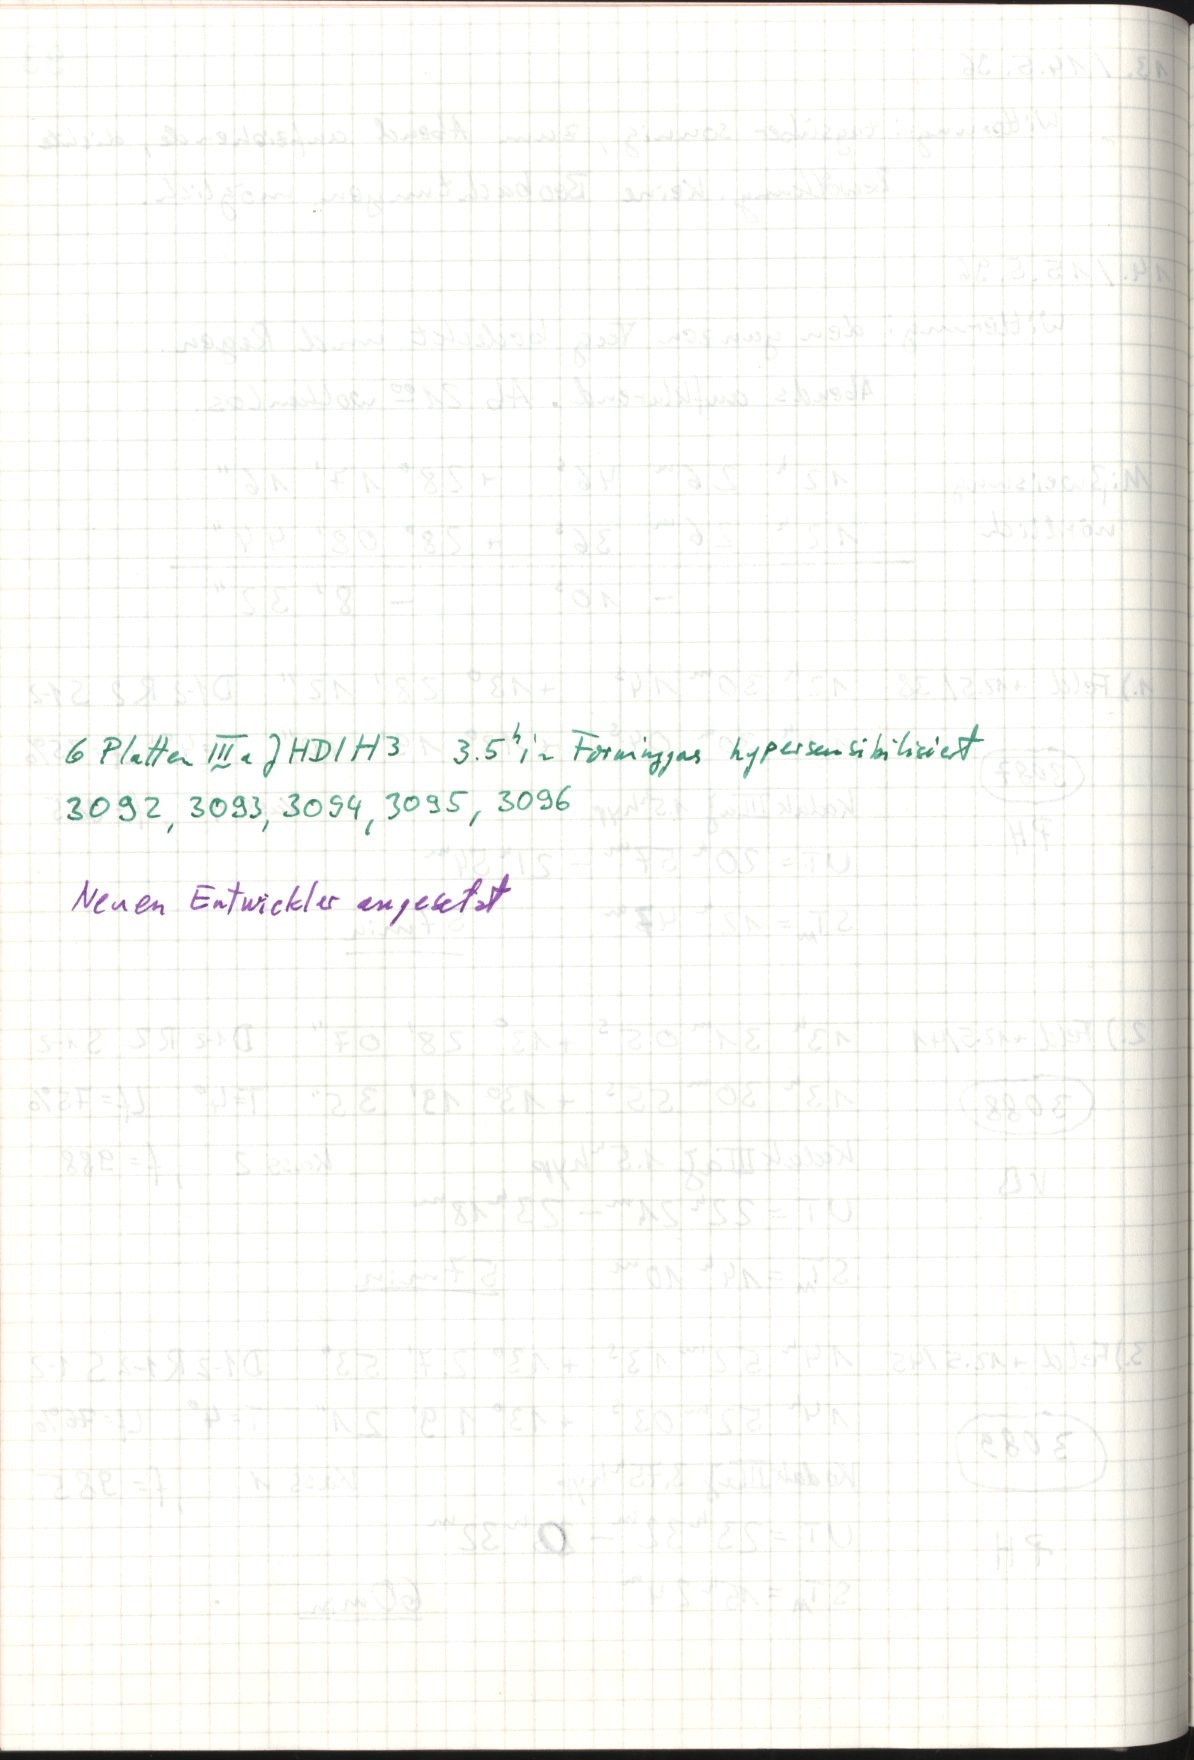 6 Platten IIIaJ HD/H3 3.5h in Forminggas hypersensibilisiert
3092, 3093, 3094, 3095, 3096
Neuen Entwickler angesetzt